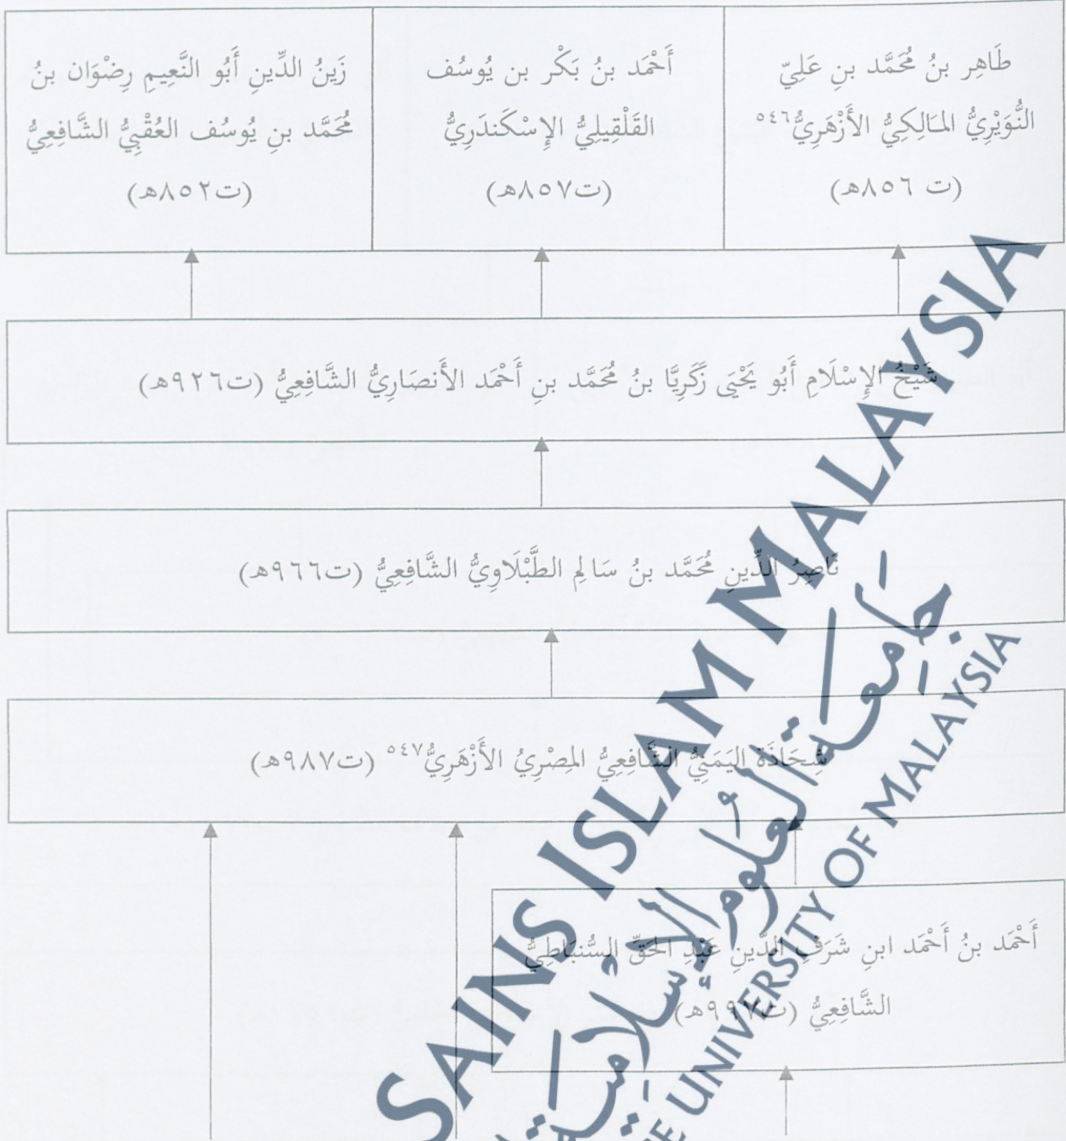 طَاهِر بنُ مُحَمَّد بنِ عَلِيّ
النُّوَيْرِيُّ المَالِكِيُّ الأَزْهَرِيُّ٥٤٦
(ت ٨٥٦هـ)
أَحْمَد بنُ بَكْر بن يُوسُف
القَلْقِيلِيُّ الإِسْكَندَرِيُّ
(ت٨٥٧هـ)
زَينُ الدِّينِ أَبُو النَّعِيمِ رِضْوَان بنُ
مُحَمَّد بنِ يُوسُف العُقْبِيُّ الشَّافِعِيُّ
(ت٨٥٢هـ)
شَيْخُ الإِسْلَامِ أَبُو يَحْيَى زَكَرِيَّا بنُ مُحَمَّد بنِ أَحْمَد الأَنصَارِيُّ الشَّافِعِيُّ (ت٩٢٦هـ)
نَاصِرُ الدِّينِ مُحَمَّد بنُ سَالِم الطَّبْلَاوِيُّ الشَّافِعِيُّ (ت٩٦٦هـ)
شِحَاذَة اليَمَنِيُّ الشَّافِعِيُّ المِصْرِيُّ الأَزْهَرِيُّ٥٤٧ (ت٩٨٧هـ)
أَحْمَد بنُ أَحْمَد ابنِ شَرَفِ الدِّينِ عَبْدِ الحَقِّ السُّنبَاطِيُّ
الشَّافِعِيُّ (ت٩٩٧هـ)
SAINS ISLAM MALAYSIA
جامعة العلوم الإسلامية
UNIVERSITY OF MALAYSIA